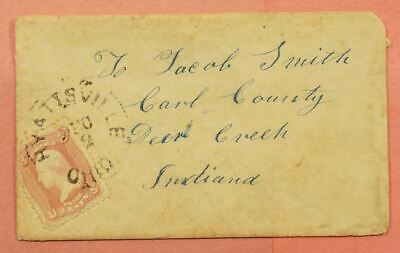 To Jacob Smith
Carl County
Deer Creek
Indiana
HYATTSVILLE
OHIO